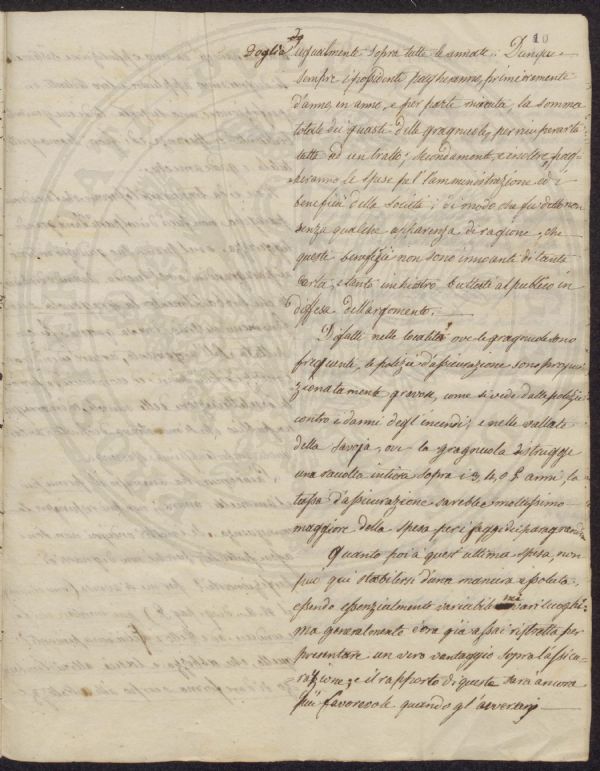 10
Doglia ugualmente sopra tutte le annate. Dunque
sempre i possidenti pagheranno, primieramente
d'anno, in anno, e per parte minuta, la somma
totale dei guasti della gragnuola, per ricuperarla
tutta ad un tratto; secondamente, e inoltre, pag-
heranno le spese per l'amministrazione ed i
benefizi della società; di modo che fu detto non
senza qualche apparenza di ragione, che
questi benefizi non sono innocenti di tanta
carta, e tanto inchiostro buttato al publico in
diffesa dell'argomento.
Difatti nelle località ove le gragnuole sono
frequenti, le polizze d'assicurazione sono propor-
zionatamente gravose, come si vede dalle polizze
contro i danni degl'incendi; e nelle vallate
della Savoja, ove la gragnuola distrugge
una racolta intiera sopra i 3, 4, o 5 anni la
tassa d'assicurazione sarebbe moltissimo
maggiore della spesa per i saggi di paragrandini
Quanto poi a quest'ultima spesa, non
può qui stabilirsi d'una maniera assoluta,
essendo essenzialmente variabile ne' vari luoghi:
ma generalmente è ora già assai ristretta per
presentare un vero vantaggio sopra l'assicu-
razione; e il rapporto di questa sarà ancora
più favorevole quando gl'